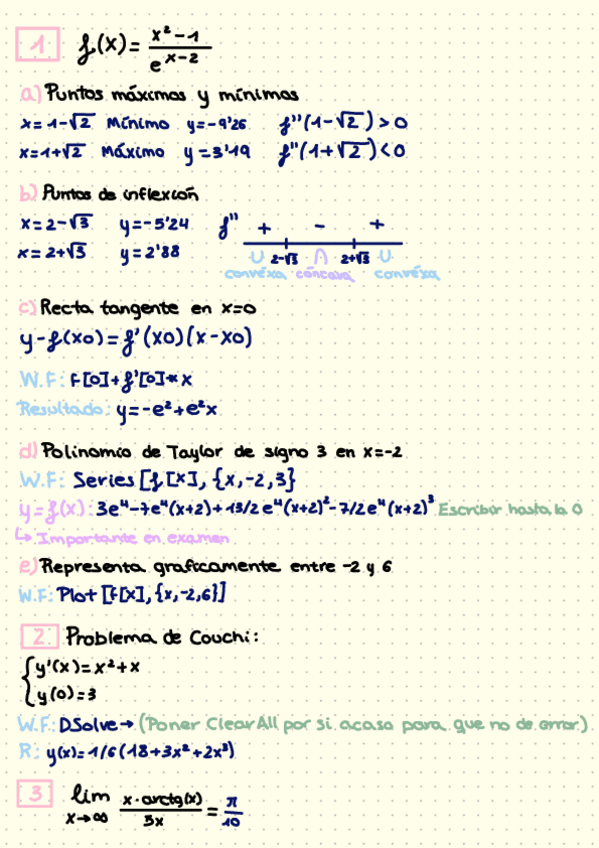 1 f(x) = x²-1 / e^x-2
a) Puntos máximos y mínimos
x=1-√2 Mínimo y=-9'26 f''(1-√2)>0
x=1+√2 Máximo y=3'19 f''(1+√2)<0
b) Puntos de inflexión
x=2-√3 y=-5'24 f'' + - +
x=2+√3 y=2'88 U 2-√3 ∩ 2+√3 U
convéxa cóncava convéxa
c) Recta tangente en x=0
y-f(x0)=f'(x0)(x-x0)
W.F: f[0]+f'[0]*x
Resultado: y=-e²+e²x
d) Polinomio de Taylor de signo 3 en x=-2
W.F: Series[f[x], {x,-2,3}
y=f(x): 3e⁴-7e⁴(x+2)+13/2e⁴(x+2)²-7/2e⁴(x+2)³ Escribir hasta la 0
↳ Importante en examen
e) Representa graficamente entre -2 y 6
W.F: Plot[f[x],{x,-2,6}]
2. Problema de Couchi:
{ y'(x)=x²+x
y(0)=3
W.F: DSolve→ (Poner ClearAll por si acaso para que no de error)
R: y(x)=1/6(18+3x²+2x³)
3 lim x→∞ x·arctg(x) / 5x = π/10